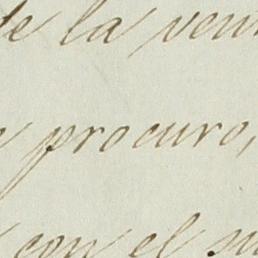 de la ven
procuro,
con el su